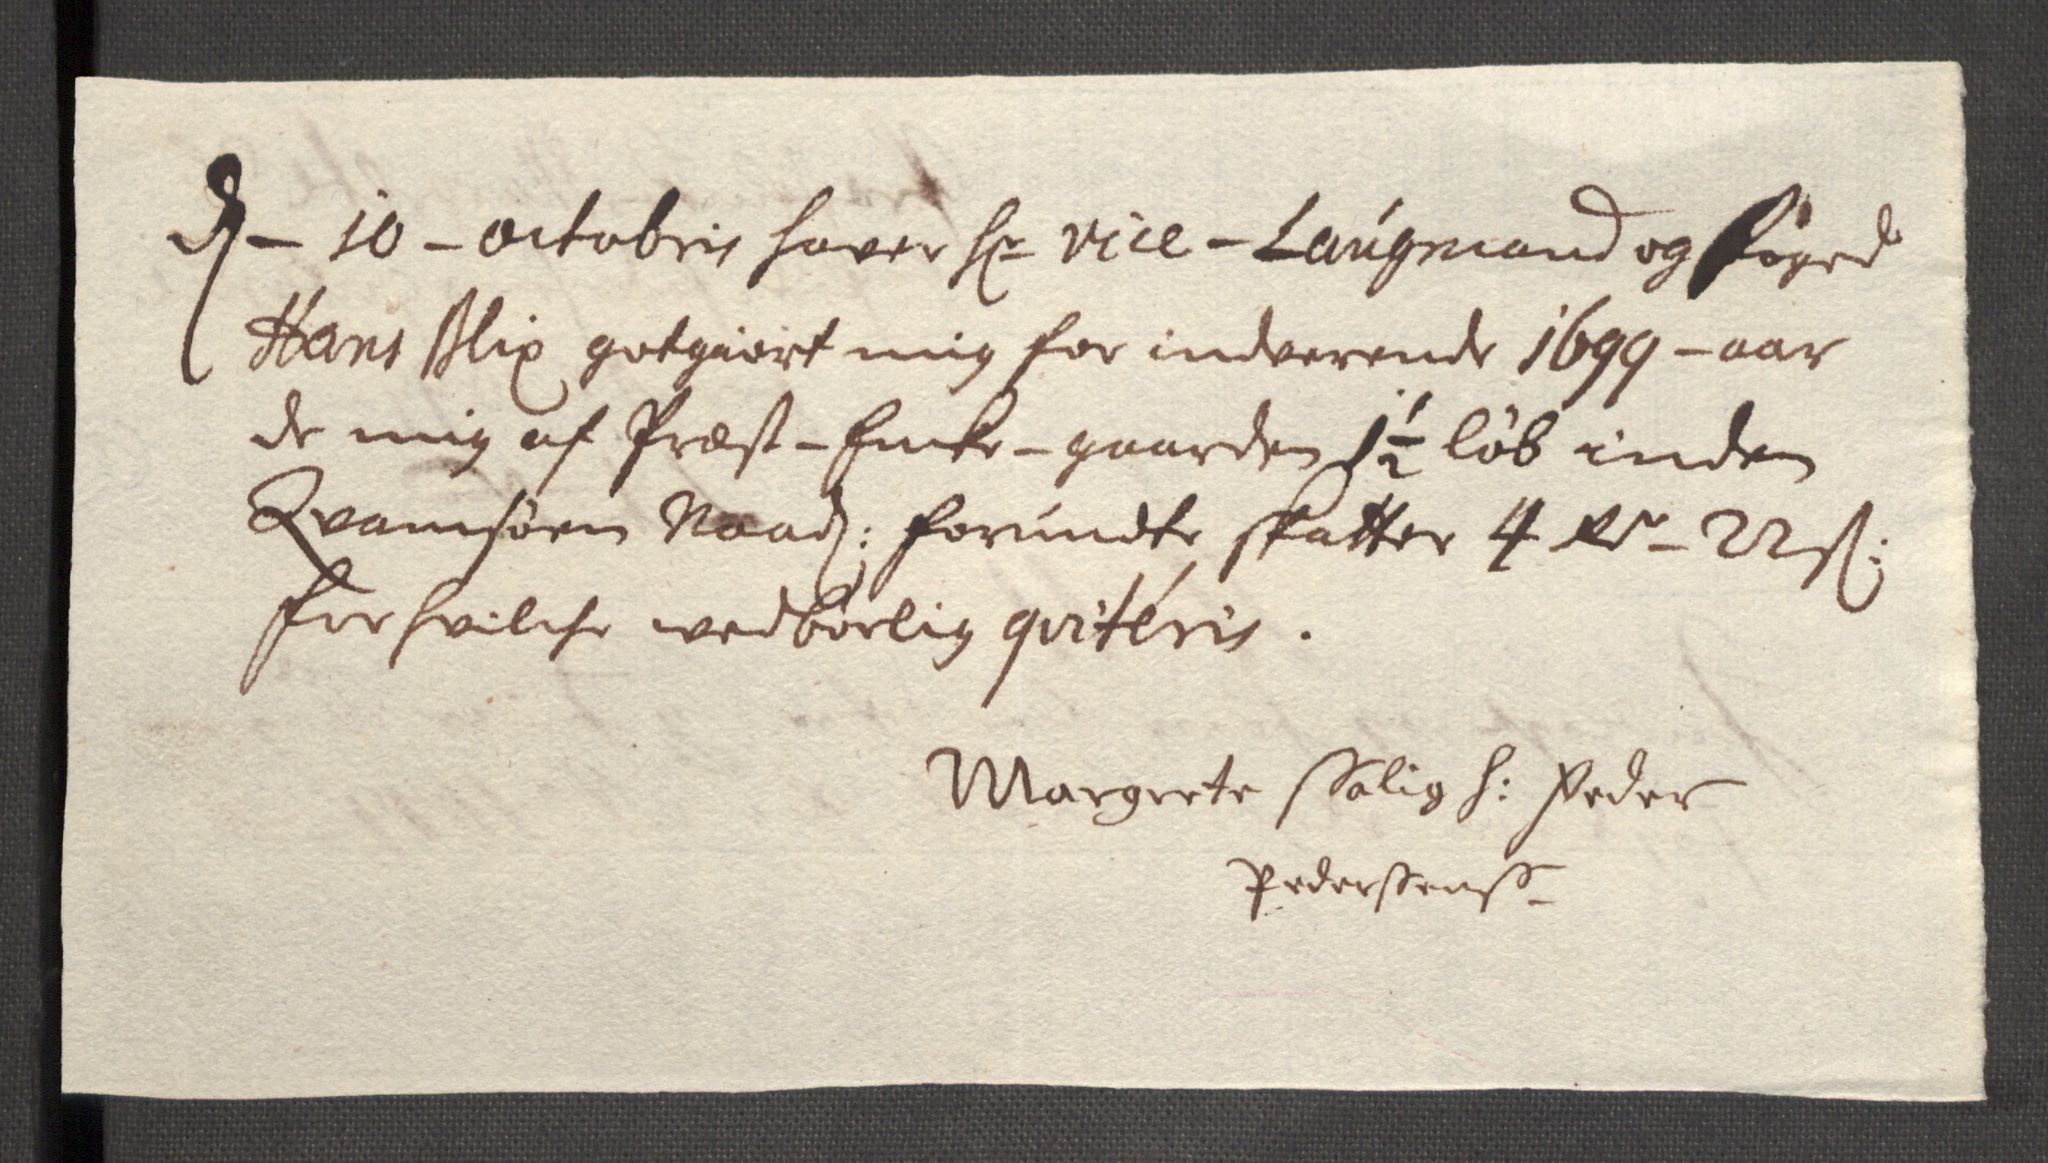 d – 10 – octobris hafver hr vice – Laugmand og foged
Hans Blix gotgiort mig for indverende 1699 – aar
de mig af Præst – Encke – gaarden 1½ løb inden
Qvamsøen Naad: forundte skatter 4 Rdr – 22 ß:
for hvilche vedbørlig qviteris.
Margrete Salig h: Peder
Pederssens